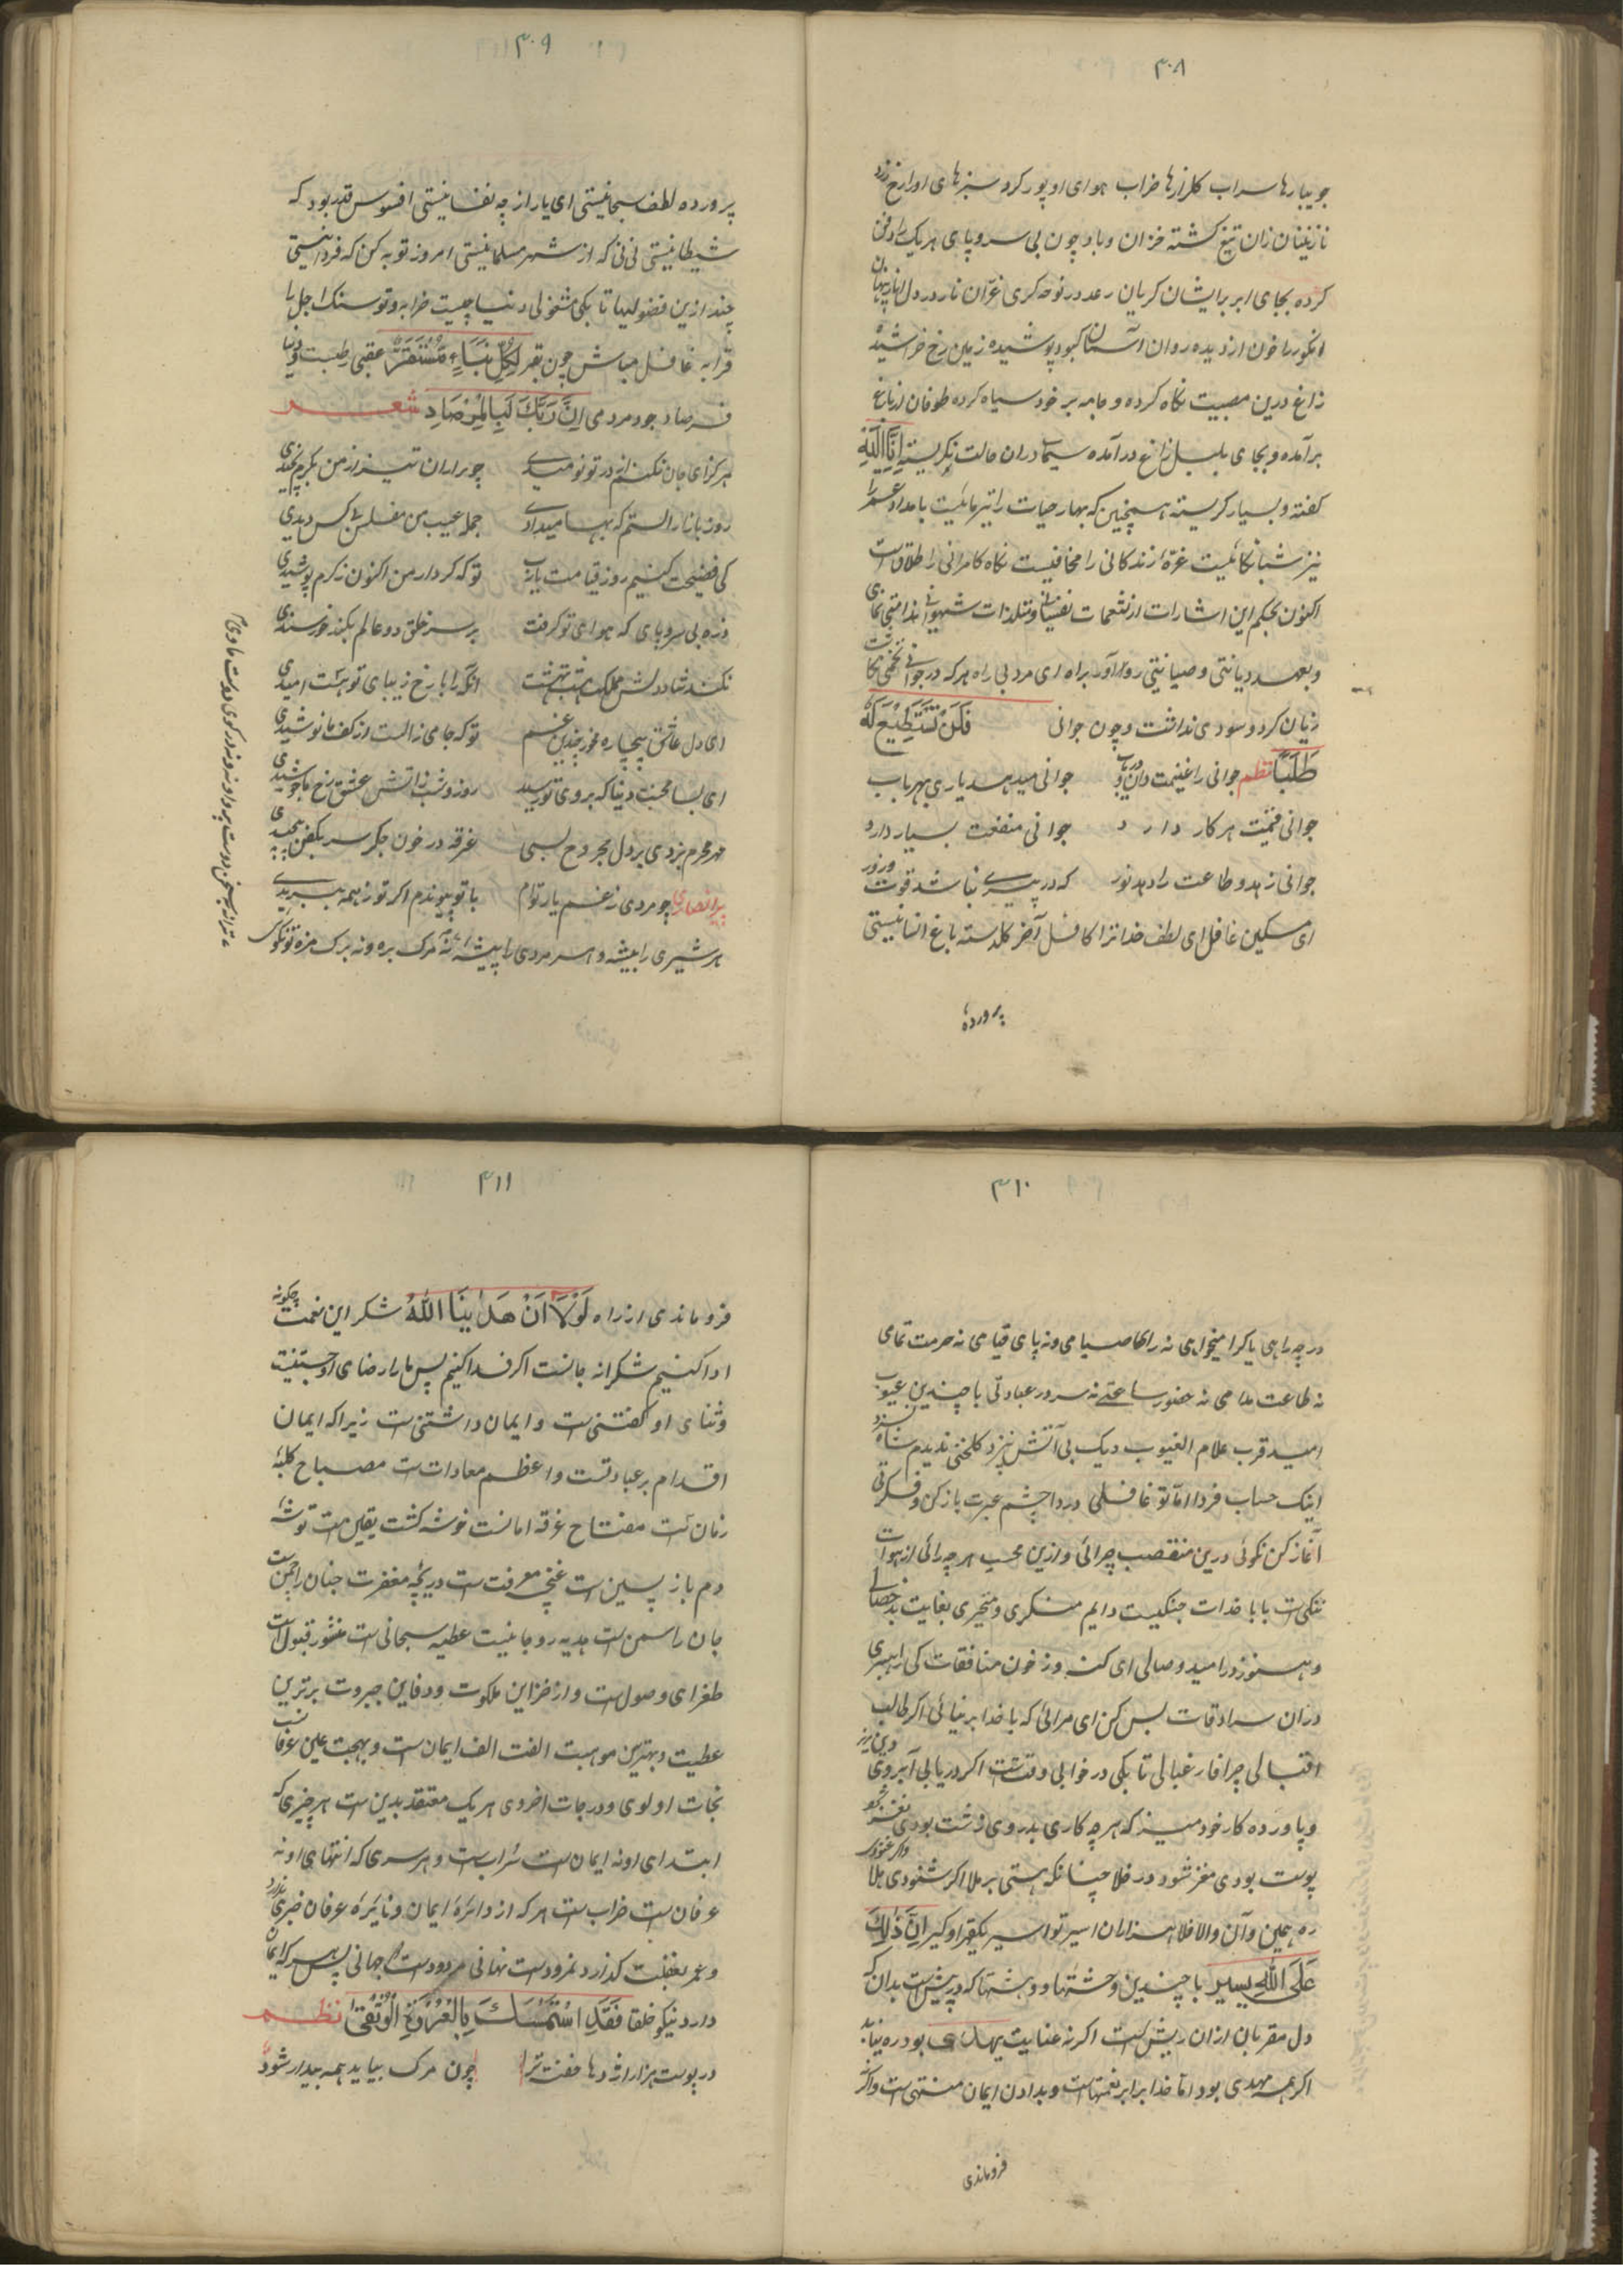 ۳۰۸
جویبارها سراب کلزارها خراب هوای او پور کرد سبزهای او را رخ زرد
نازنینان زان تیغ کشته خزان و باد چون بی سر و پای هر یک را دفن
کرده بجای ابر برایشان کریان رعد در نوحه کری غرّان نار در دل نار پنهان
انکور را خون از دیده روان آسمان کبود پوشیده زمین رخ خراشیده
زاغ درین مصیبت نکاه کرده و جامه بر خود سیاه کرده طوفان از باغ
برآمده و بجای بلبل زاغ درآمده سیما دران حالت نکریسته اِنَّا لِلّٰهِ
کفته و بسیار کریسته همچنین که بهار حیات را تیر ماهیست بامداد عمر را
نیز شبانکاهیست غرّهٔ زندکانی را مخافیست نکاه کامرانی را طلاق است
اکنون بحکم این اشارات از تنعمات نفسانی و تلذذات شهوانی ندامتی نمای
و بعهد دیانتی و صیانتی رو آور براه ای مرد بی راه هرکه در جوانی تخمی نکاشت
زیان کرد و سودی نداشت و چون جوانی فَلَنْ تَسْتَطِیْعَ لَهُ
طَلَبًا نظم جوانی را غنیمت دان و دریاب جوانی میدهد یاری بهر باب
جوانی قیمت هر کار دارد جوانی منفعت بسیار دارد
جوانی زهد و طاعت را دهد نور که در پیری نباشد قوت و زور
ای مسکین غافل ای لطف خدا ترا کافل آخر کلدسته باغ انسانیستی
پرورده
۳۰۹
پرورده لطف سبحانیستی ای یار از چه نفسانیستی افسوس قدر بود که
شیطانیستی نی نی که از شهر مسلمانیستی امروز توبه کن که فردا نیستی
چند ازین فضولیها تا بکی مشغولی دنیا چیست خرابه و تو سنک اجل را
قرابه غافل مباش چون بقر لِکُلِّ نَبَاءٍ مُسْتَقَرٌّ عقبی طلبست و دنیا
فرصاد جو مردمی اِنَّ رَبَّکَ لَبِالْمِرْصَادِ شعر
هرکز ای جان نکنم از در تو نومیدی
روز بازار الستم که بها میدادی جمله عیب من مفلس بی کس دیدی
کی فضیحت کنیم روز قیامت یارب تو که کردار من اکنون ز کرم پوشیدی
ذره بی سر و پای که هوای تو کرفت بر سر خلق دو عالم بکند خورسندی
نکند شاد دلش مملکت هشت بهشت آنکه را با رخ زیبای تو هست امیدی
ای دل عاشق بیچاره مخور چندین غم تو که جامی ز الست از کف ما نوشیدی
ای بسا محنت دنیا که بروی تو رسید روز و شب ز آتش عشق رخ ما جوشیدی
مهر محرم بزدی بر دل مجروح بسی غرقه در خون جکر سر بکفن پیچیدی
پیر انصاری چو مردی ز غم یار توام با تو پیوندم اکر تو ز همه ببریدی
هر شیری را بیشه و هر مردی را پیشه
۳۱۰
در چه راهی یا کرا میخواهی نه راه صیامی و نه پای قیامی نه حرمت تمامی
نه طاعت مدامی نه حضور ساعتی نه سرور عبادتی با چندین عیوب
امید قرب علام الغیوب دیک بی آتش نپزد کلخنی ندیم شاه نسزد
اینک حساب فردا اما تو غافلی دردا چشم عبرت باز کن و فکرتی
آغاز کن نکوئی درین منقصب چرائی و ازین محب هر چه رائی از هوات
ننکی است با با خدات جنکیست دایم منکری و متحیری بغایت بدخصالی
و هنوز در امید وصالی ای کنه وز خون منافقات کی راه بری
دران سرادقات بس کن ای مرائی که با خدا برنیائی اکر طالب
اقبالی چرا فارغبالی تا بکی در خوابی وقتست اکر دریابی آبروی دین مریز
و پاورده کار خود میز که هر چه کاری بدروی زشت بودی نغز شو
پوست بودی مغز شو و در خلا چنانکه هستی بر ملا اکر شنودی هلا
ره همین و آن والا فلا هزاران اسیر تو اسیر یکقراو کیر اِنَّ ذٰلِکَ
عَلَی اللّٰهِ یَسِیر با چندین وحشتها و دهشتها که در پیش است بدان که
دل مقربان ازان ریش است اکر نه عنایت یهدی بود ره نیابد
اکر همه مهدی بود اما خدا برابر نعمتهاست و بدادن ایمان منتهی است و اکر
فروماندی
۳۱۱
فروماندی از راه لَوْلَا اَنْ هَدٰینَا اللّٰهُ شکر این نعمت چکونه
ادا کنیم شکرانه جانست اکر فدا کنیم پس ما را رضای او جستنیست
و ثنای او کفتنی ست و ایمان داشتنی ست زیرا که ایمان
اقدام بر عبادتست و اعظم معادات ست مصباح کلبهٔ
زمان ست مفتاح غرفه امانست خوشه کشت یقین ست توشهٔ
دم باز پسین است غنچه معرفت ست دریچه مغفرت جنان را چمن ست
جان را سمن ست هدیه روحانیست عطیه سبحانی ست منشور قبول است
طغرای وصول ست و از خزاین ملکوت و دفاین جبروت برترین
عطیت و بهترین موهبت الفت الف ایمان ست و بهجت عین عرفانست
نجات اولوی و درجات اخروی هر یک معتقد بدین ست هر چیزی که
ابتدای او نه ایمان ست سراب ست و هر سری که انتهای او نه
عرفان ست خراب ست هر که از دائرهٔ ایمان و نایرهٔ عرفان خبری ندارد
و عمر بغفلت کذارد نمرودست نهانی مردودست جهانی پس هر که ایمان
دارد نیکو خلقا فَقَدِ اسْتَمْسَکَ بِالْعُرْوَةِ الْوُثْقٰی نظم
در پوست هزار اژدها خفته ترا چون مرک بیاید همه بیدار شود